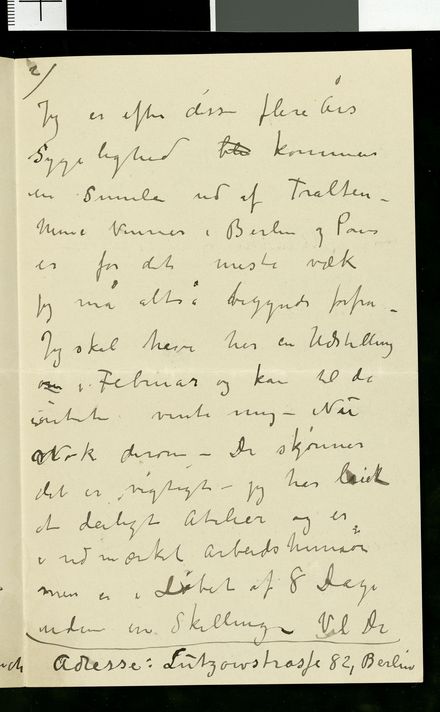 2/
Jeg er efter disse flere Års
Sygelighed ble kommen
en Smule ud af Tralten –
Mine Venner i Berlin og Paris
er for det meste væk
jeg må altså begynde forfra –
Jeg skal have her en Udstilling
om i Februar og kan til da
intet vente mig – Nu
Nok derom – De skjønner
det er vigtigt – jeg har leiet
et deiligt Atelier og er
i udmærket Arbeidshumør
men er i Løbet af 8 Dage
uden en Skilling – Vil De
Adresse: Lützowstrasse 82, Berlin